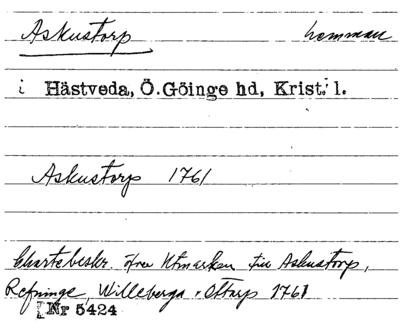 Askustorp hemman
i Hästveda, Ö.Göinge hd, Krist. l.
Askustorp 1761
Chartebeskr. öfver Utmarken till Askustorp,
Refninge, Willeberga, Ottarp 1761
Nr 5424